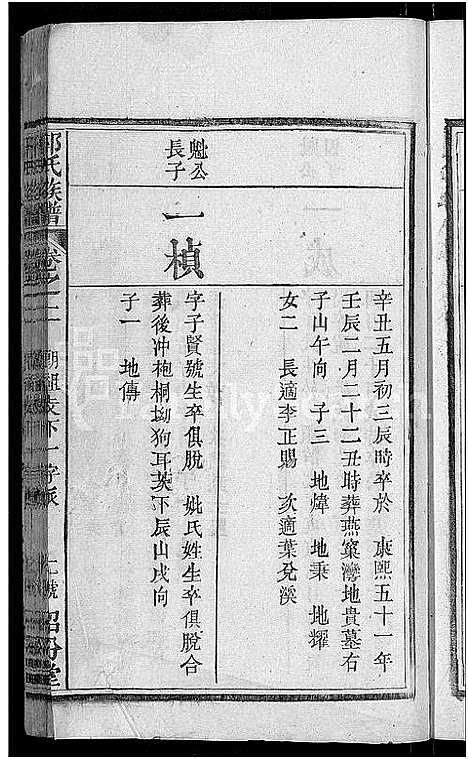 辛丑五月初三辰時卒於　康熙五十一年
壬辰二月二十二丑時葬燕窠灣地貴墓右
子山午向　子三　地煒　地秉　地耀
女二　長適李正賜　次適葉兌溪
魁公
長子
一楨
字子賢號生卒俱脫　妣氏姓生卒俱脫合
葬後冲袍桐坳狗耳芙下辰山戌向
子一　地傳
氏族譜
卷之二
下一字派
號